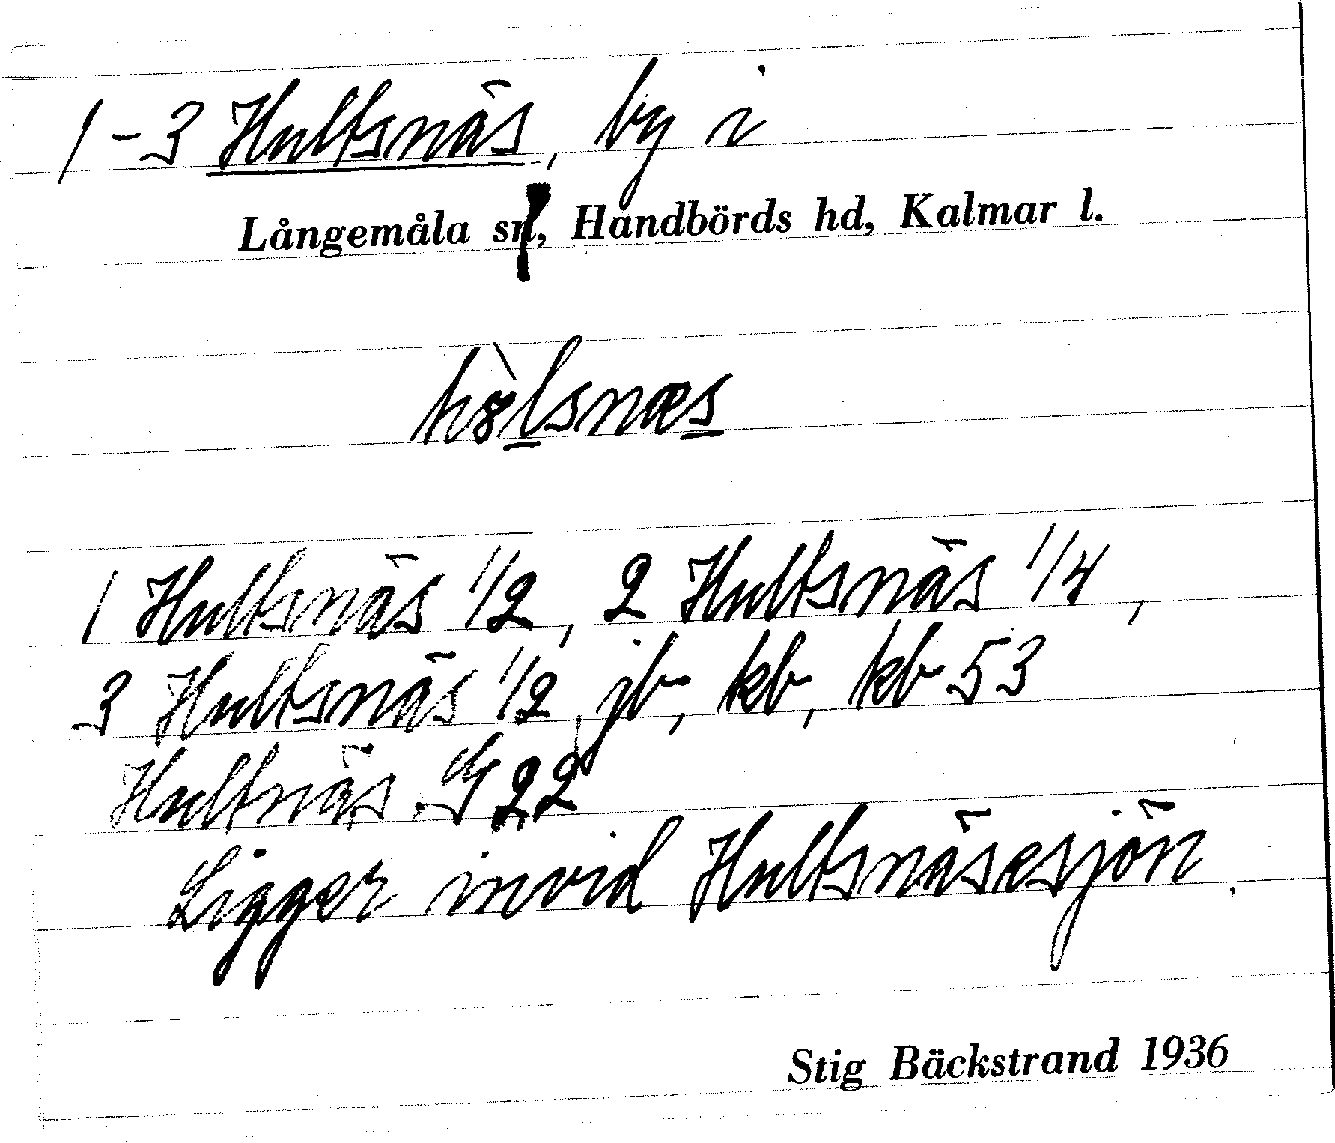 1-3 Hultsnäs, by i
Långemåla sn, Handbörds hd, Kalmar l.
1 Hultsnäs 1/2, 2 Hultsnäs 1/4,
3 Hultsnäs 1/2, jb, kb, kb 53
Hultnäs G 22
Ligger invid Hultsnäsesjön
Stig Bäckstrand 1936